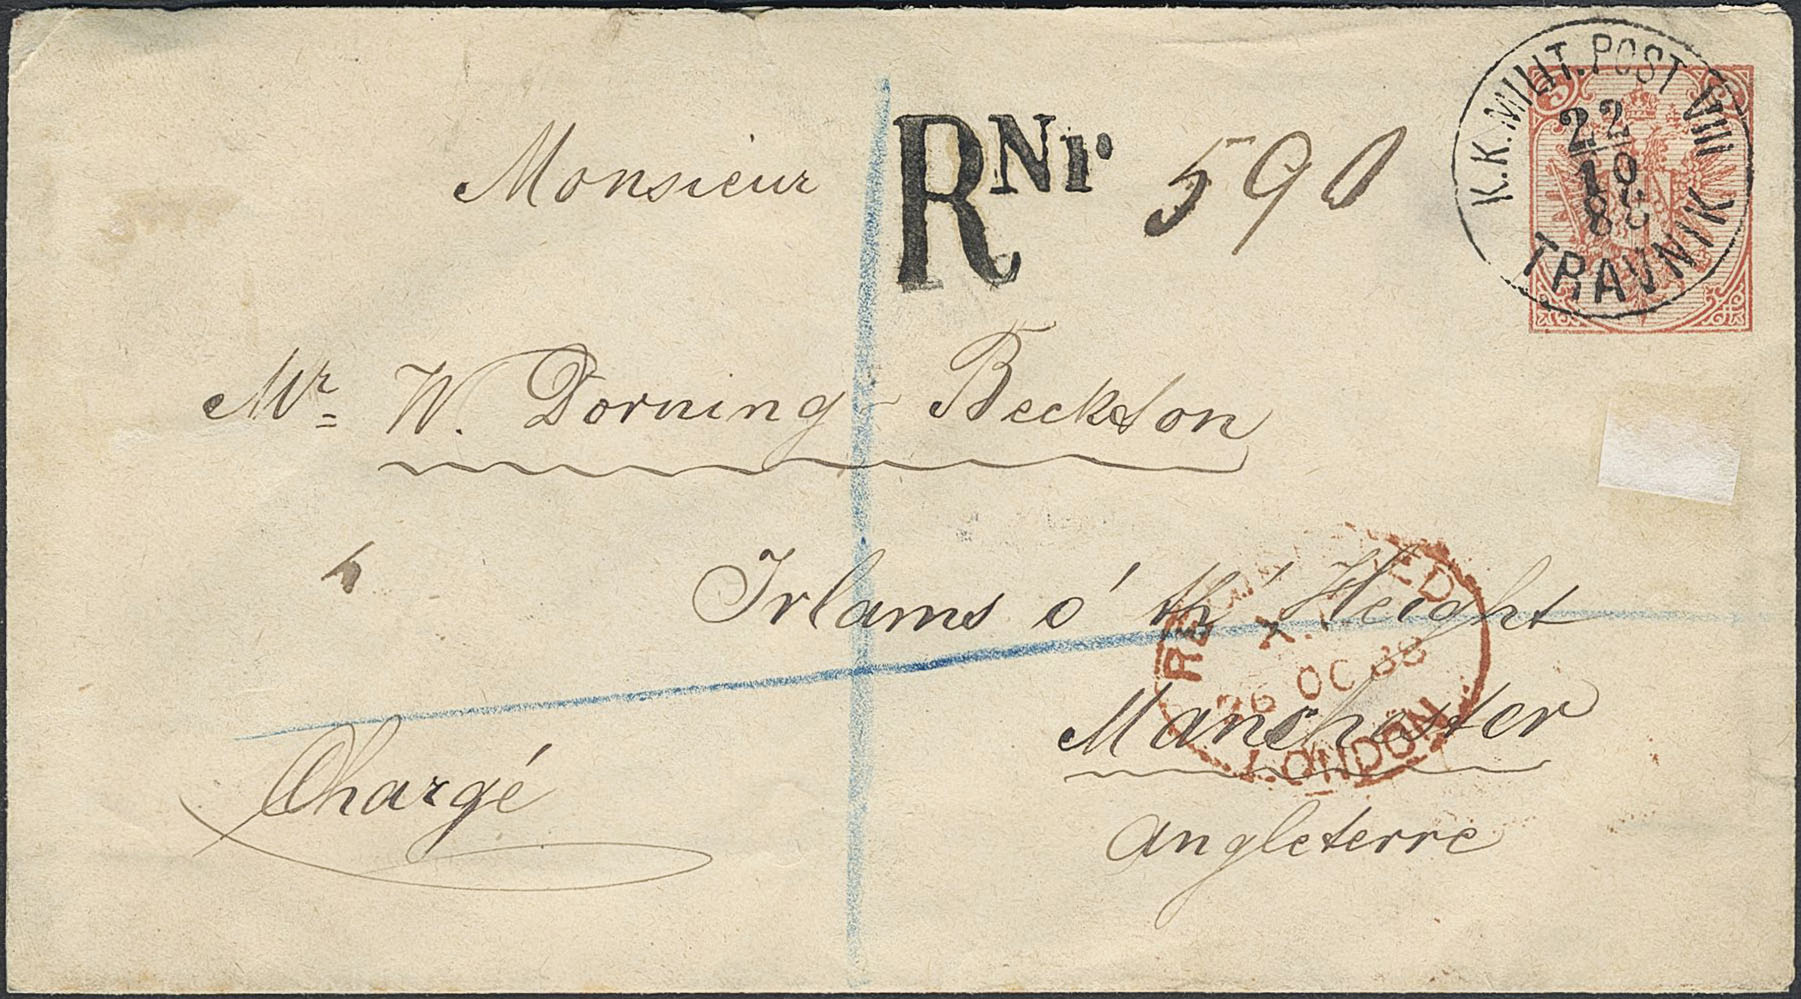 K.K. MILIT. POST VIII
22
10
88
TRAVNIK
5 5
Monsieur
R Nr. 590
Mr. W. Dorning Beckton
Irlams o' th' Height
Manchester
Angleterre
Chargé
X.
26 OC 88
LONDON